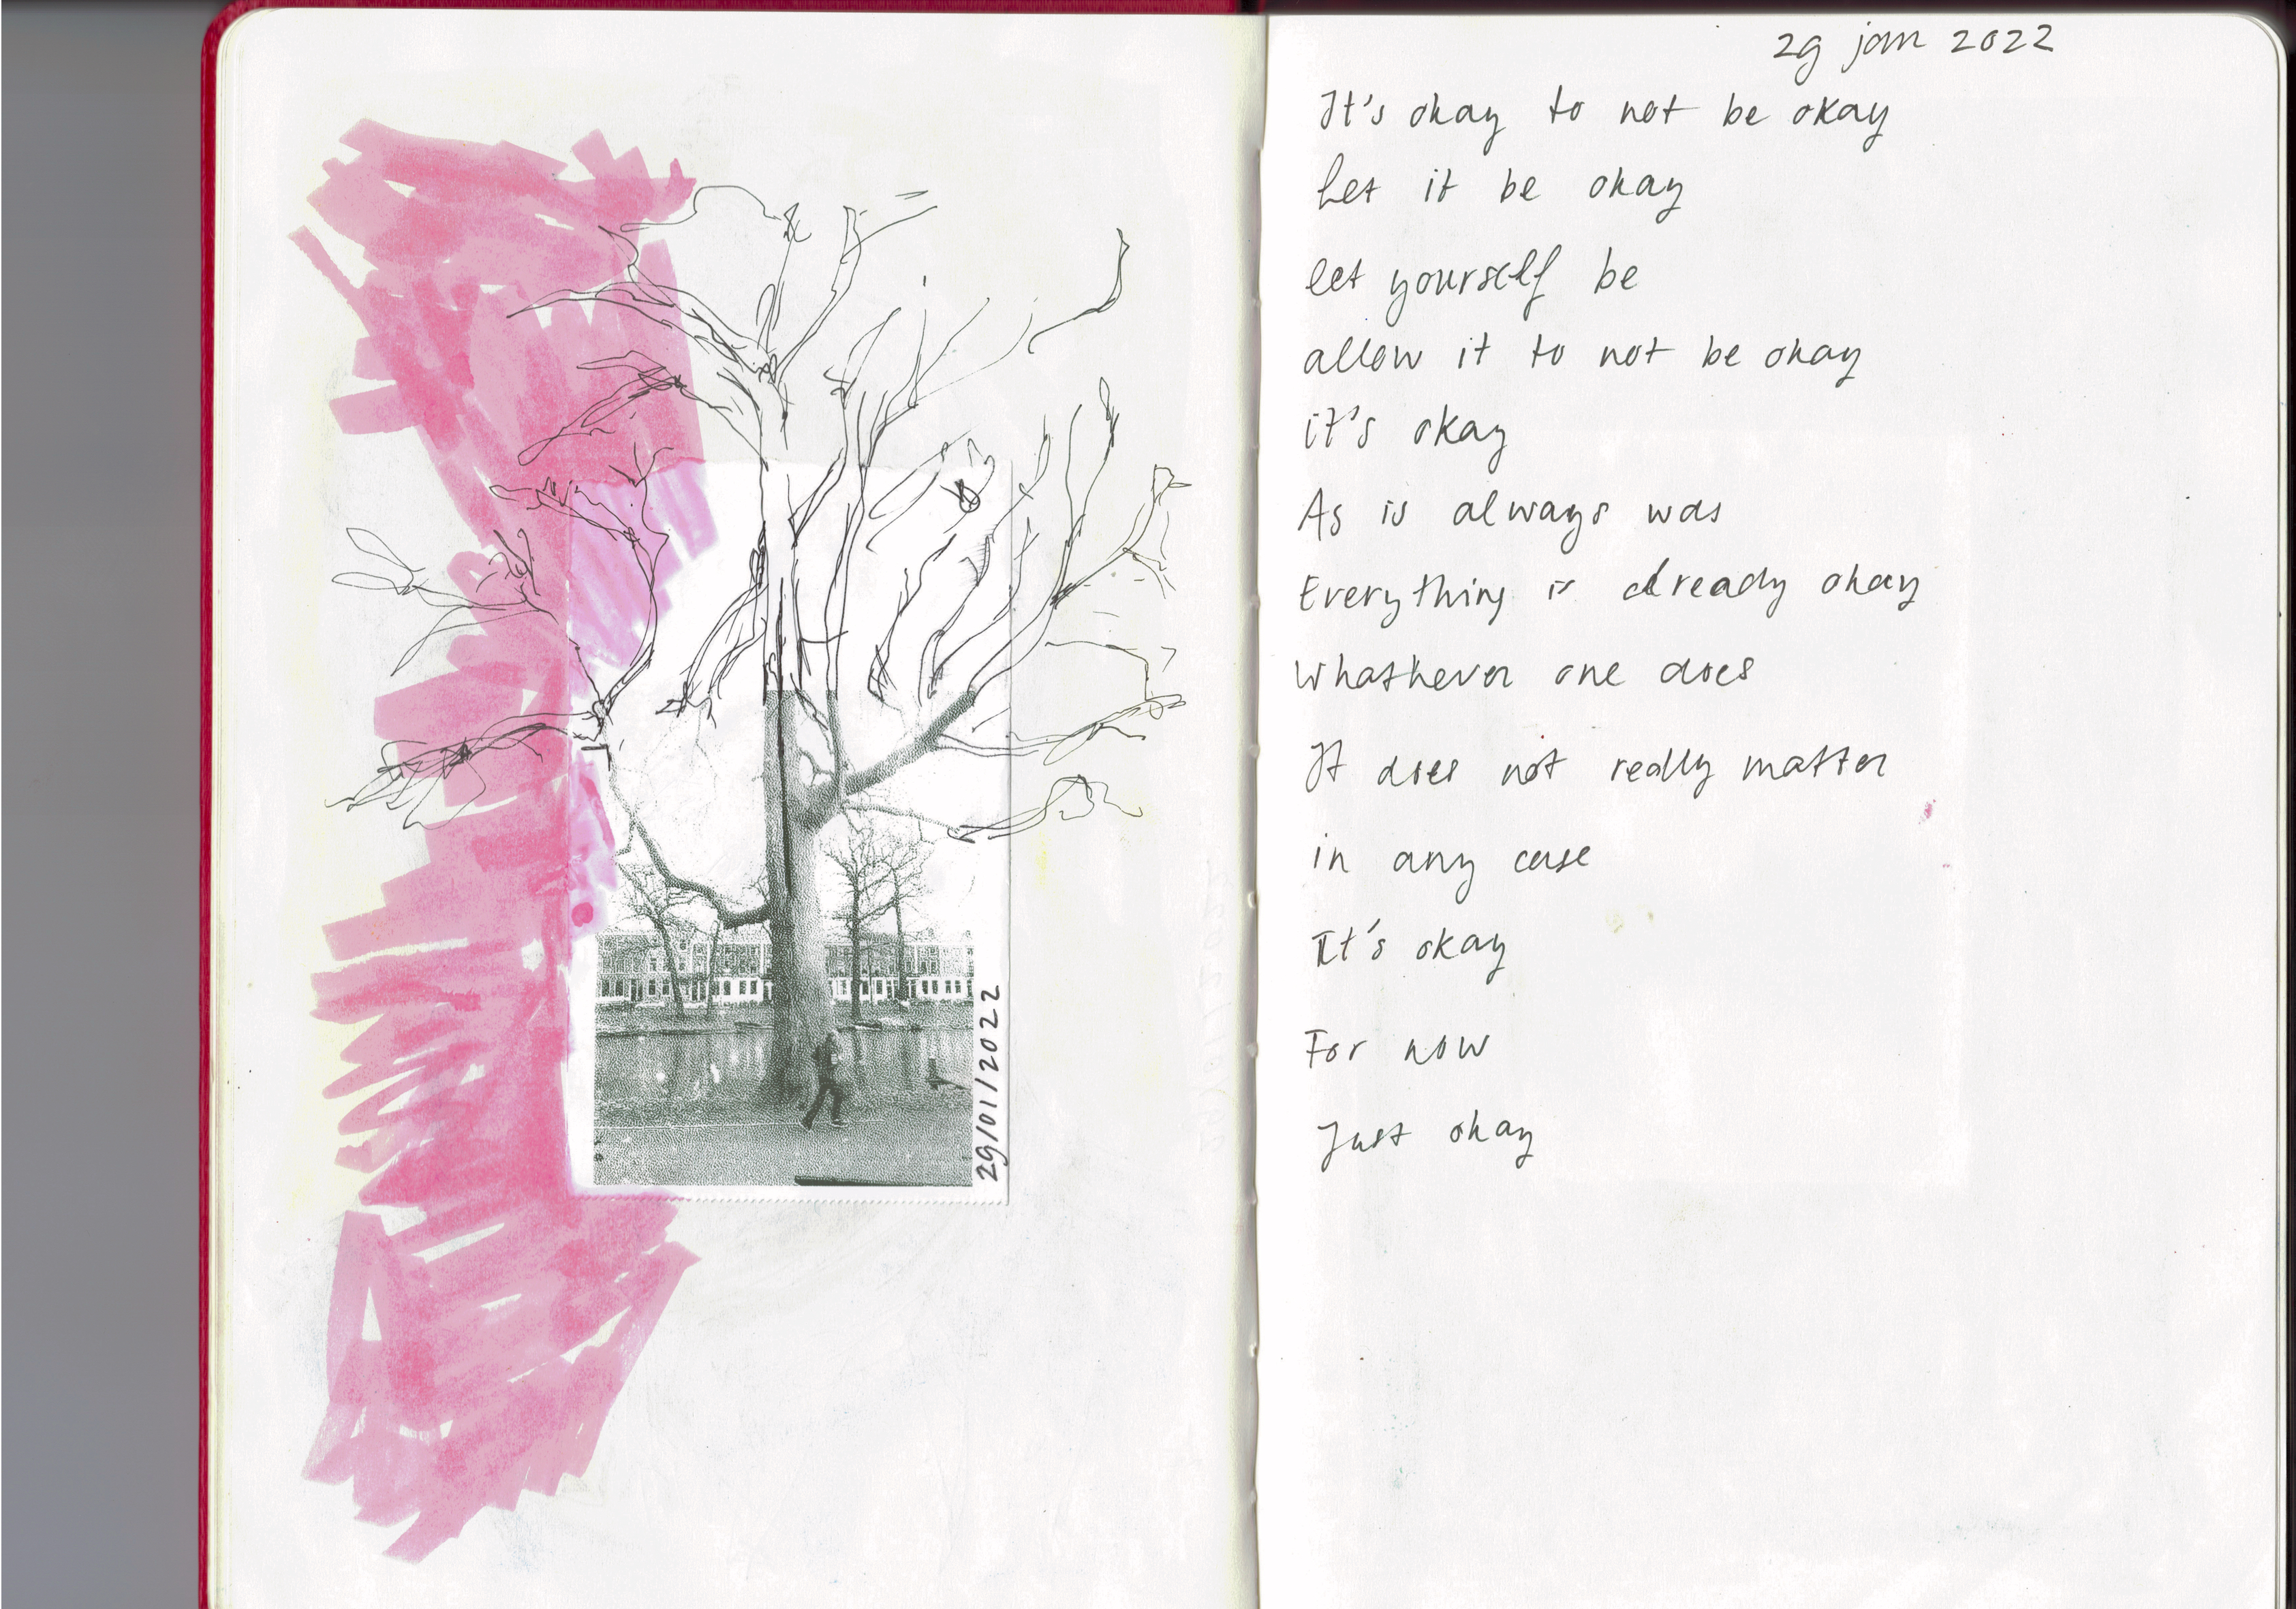 29/01/2022
29 jan 2022
It's okay to not be okay
Let it be okay
let yourself be
allow it to not be okay
it's okay
As is always was
Everything is already okay
Whathever one does
It does not really matter
in any case
It's okay
For now
Just okay